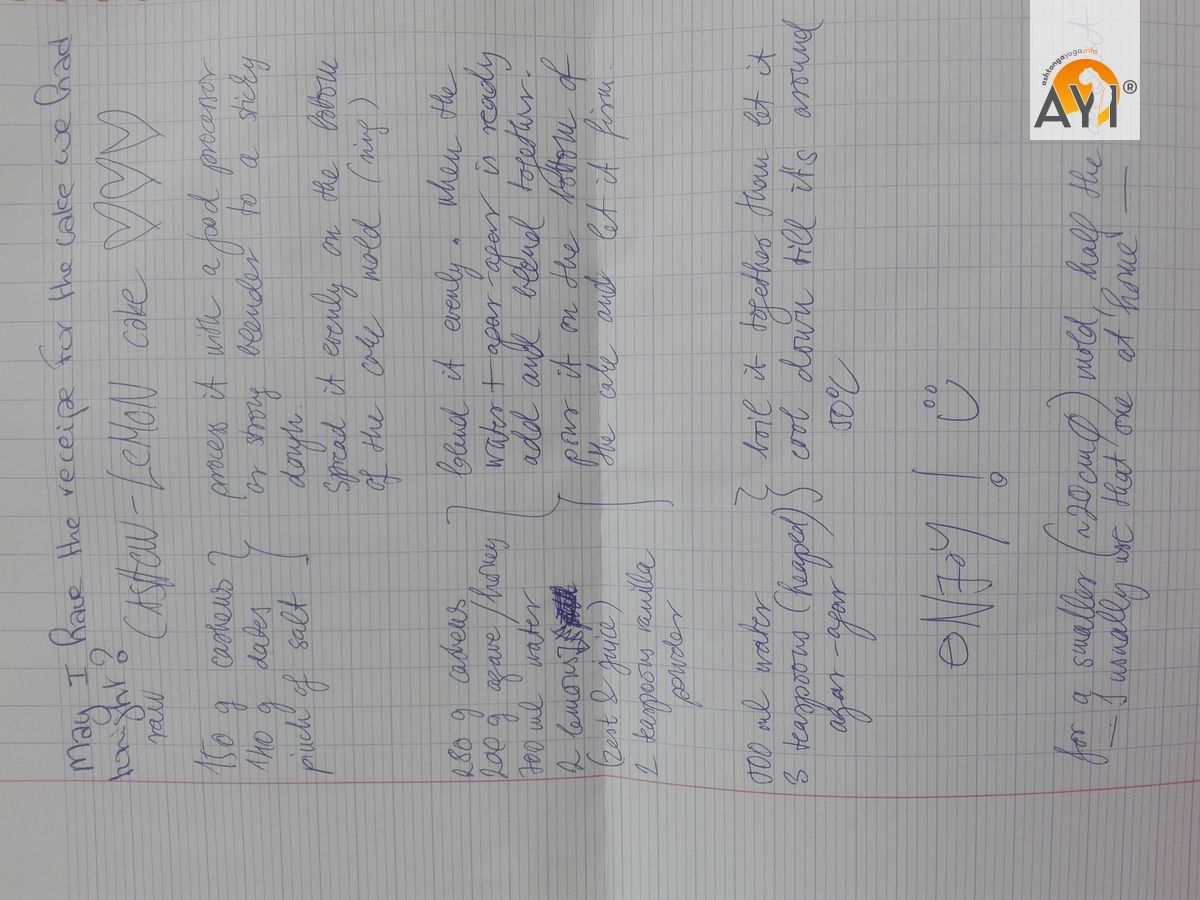 May I have the receipe for the cake we had
tonight?
raw CASHEW-LEMON cake ♡♡♡♡
150 g cashews } process it with a food processor
140 g dates or strong blender to a sticky
pinch of salt dough.
Spread it evenly on the bottom
of the cake mold (ring)
280 g cashews } blend it evenly. when the
200 g agave/honey water + agar-agar is ready
700 ml water add and blend together.
2 lemons pour it on the bottom of
(zest & juice) the cake and let it firm.
2 teaspoons vanilla
powder
500 ml water } boil it together than let it
3 teaspoons (heaped) cool down till it's around
agar-agar 50°C
ENJOY! ü
for a smaller (~20cmØ) mold, half the
— I usually use that one at 'home' —
ashtangayoga.info
AYI®